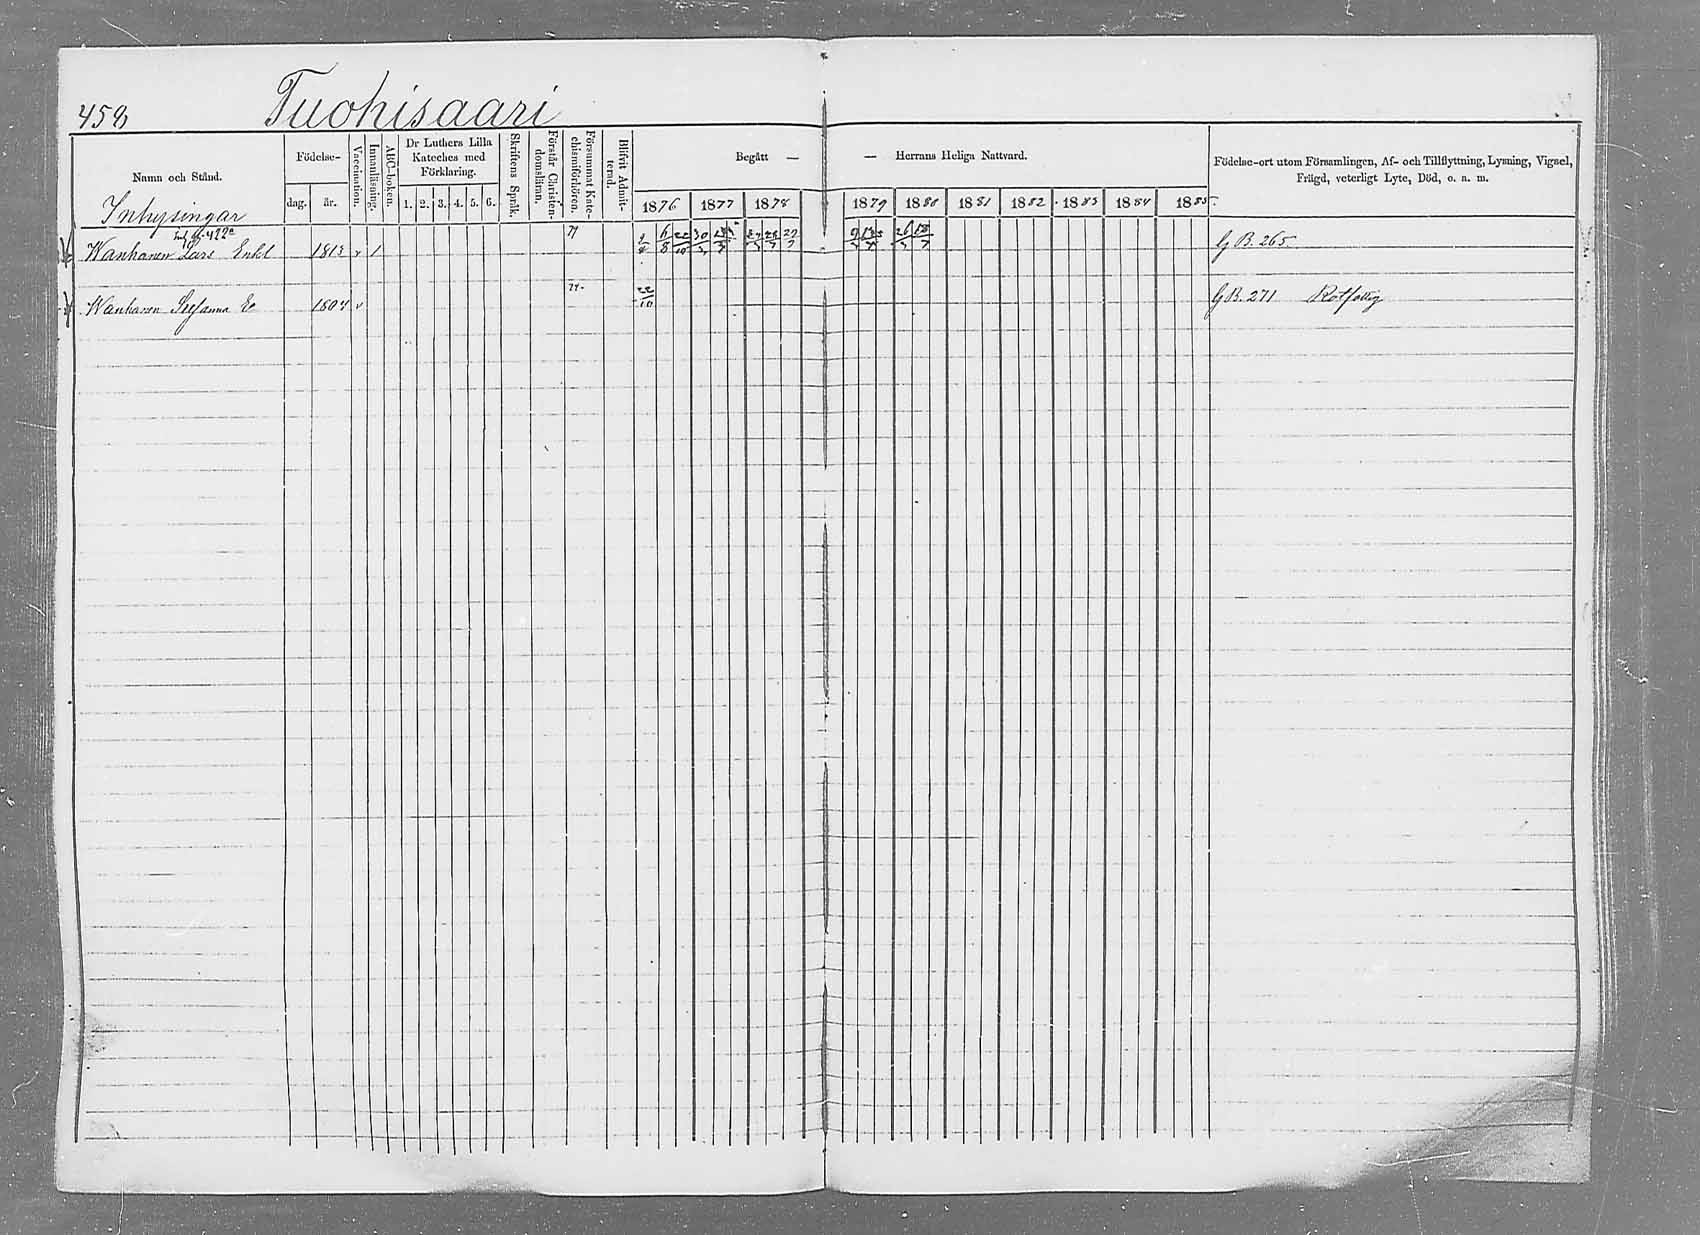 458 Tuohisaari
Namn och Stånd.
Födelse-
dag. år.
Vaccination.
Innanläsning.
ABC-boken.
Dr Luthers Lilla
Kateches med
Förklaring.
1. 2. 3. 4. 5. 6.
Skriftens Språk.
Förstår Christen-
domsläran.
Försummat Kate-
chismiförhören.
Blifvit Admit-
terad.
Begått — — Herrans Heliga Nattvard.
1876 1877 1878 1879 1880 1881 1882 1883 1884 1885
Födelse-ort utom Församlingen, Af- och Tillflyttning, Lysning, Vigsel,
Frägd, veterligt Lyte, Död, o. a. m.
Inhysingar
Wanhanen Lars Enkl 1813 v 1 G B. 265
Wanhanen E 1804 v G B. 271